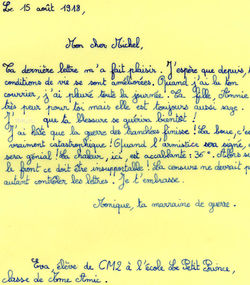 Le 15 août 1918,
Mon cher Michel,
Ta dernière lettre m'a fait plaisir. J'espère que depuis, t
conditions de vie se sont améliorées. Quand j'ai lu ton
courrier, j'ai pleuré toute la journée. Ta fille, Annie
très peur pour toi mais elle est toujours aussi sage.
J' que ta blessure se guérira bientôt !
J'ai hâte que la guerre des tranchées finisse ! La boue, c'es
vraiment catastrophique ! Quand l'armistice sera signé,
sera génial ! La chaleur, ici, est accablante : 36°. Alors s
le front ce doit être insupportable ! La censure ne devrait p
autant contrôler les lettres ! Je t'embrasse.
Monique, ta marraine de guerre.
Eva, élève de CM2 à l'école Le Petit Prince,
classe de Mme Amic.